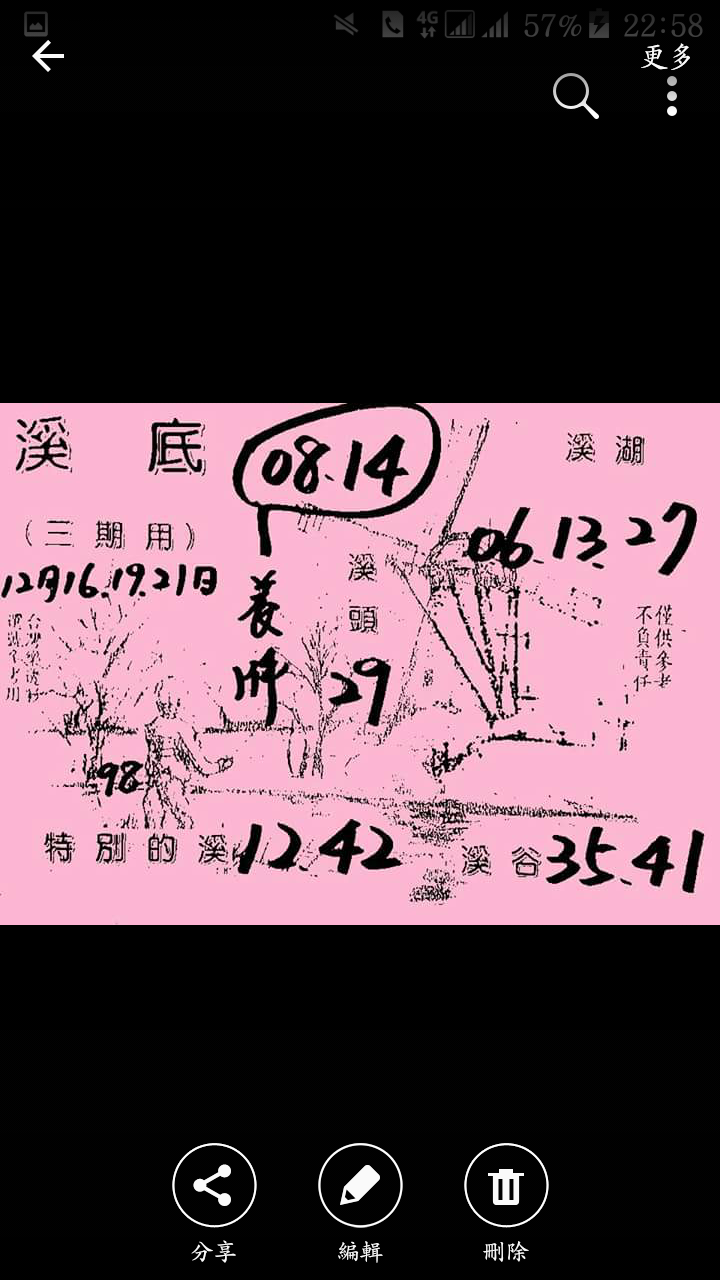 4G 57% 22:58
更多
溪底
08.14
溪湖
(三期用)
06.13.27
12月16.19.21日
溪頭
養
29
僅供參考
不負責任
98
特別的溪 12.42
溪谷 35.41
分享
編輯
刪除